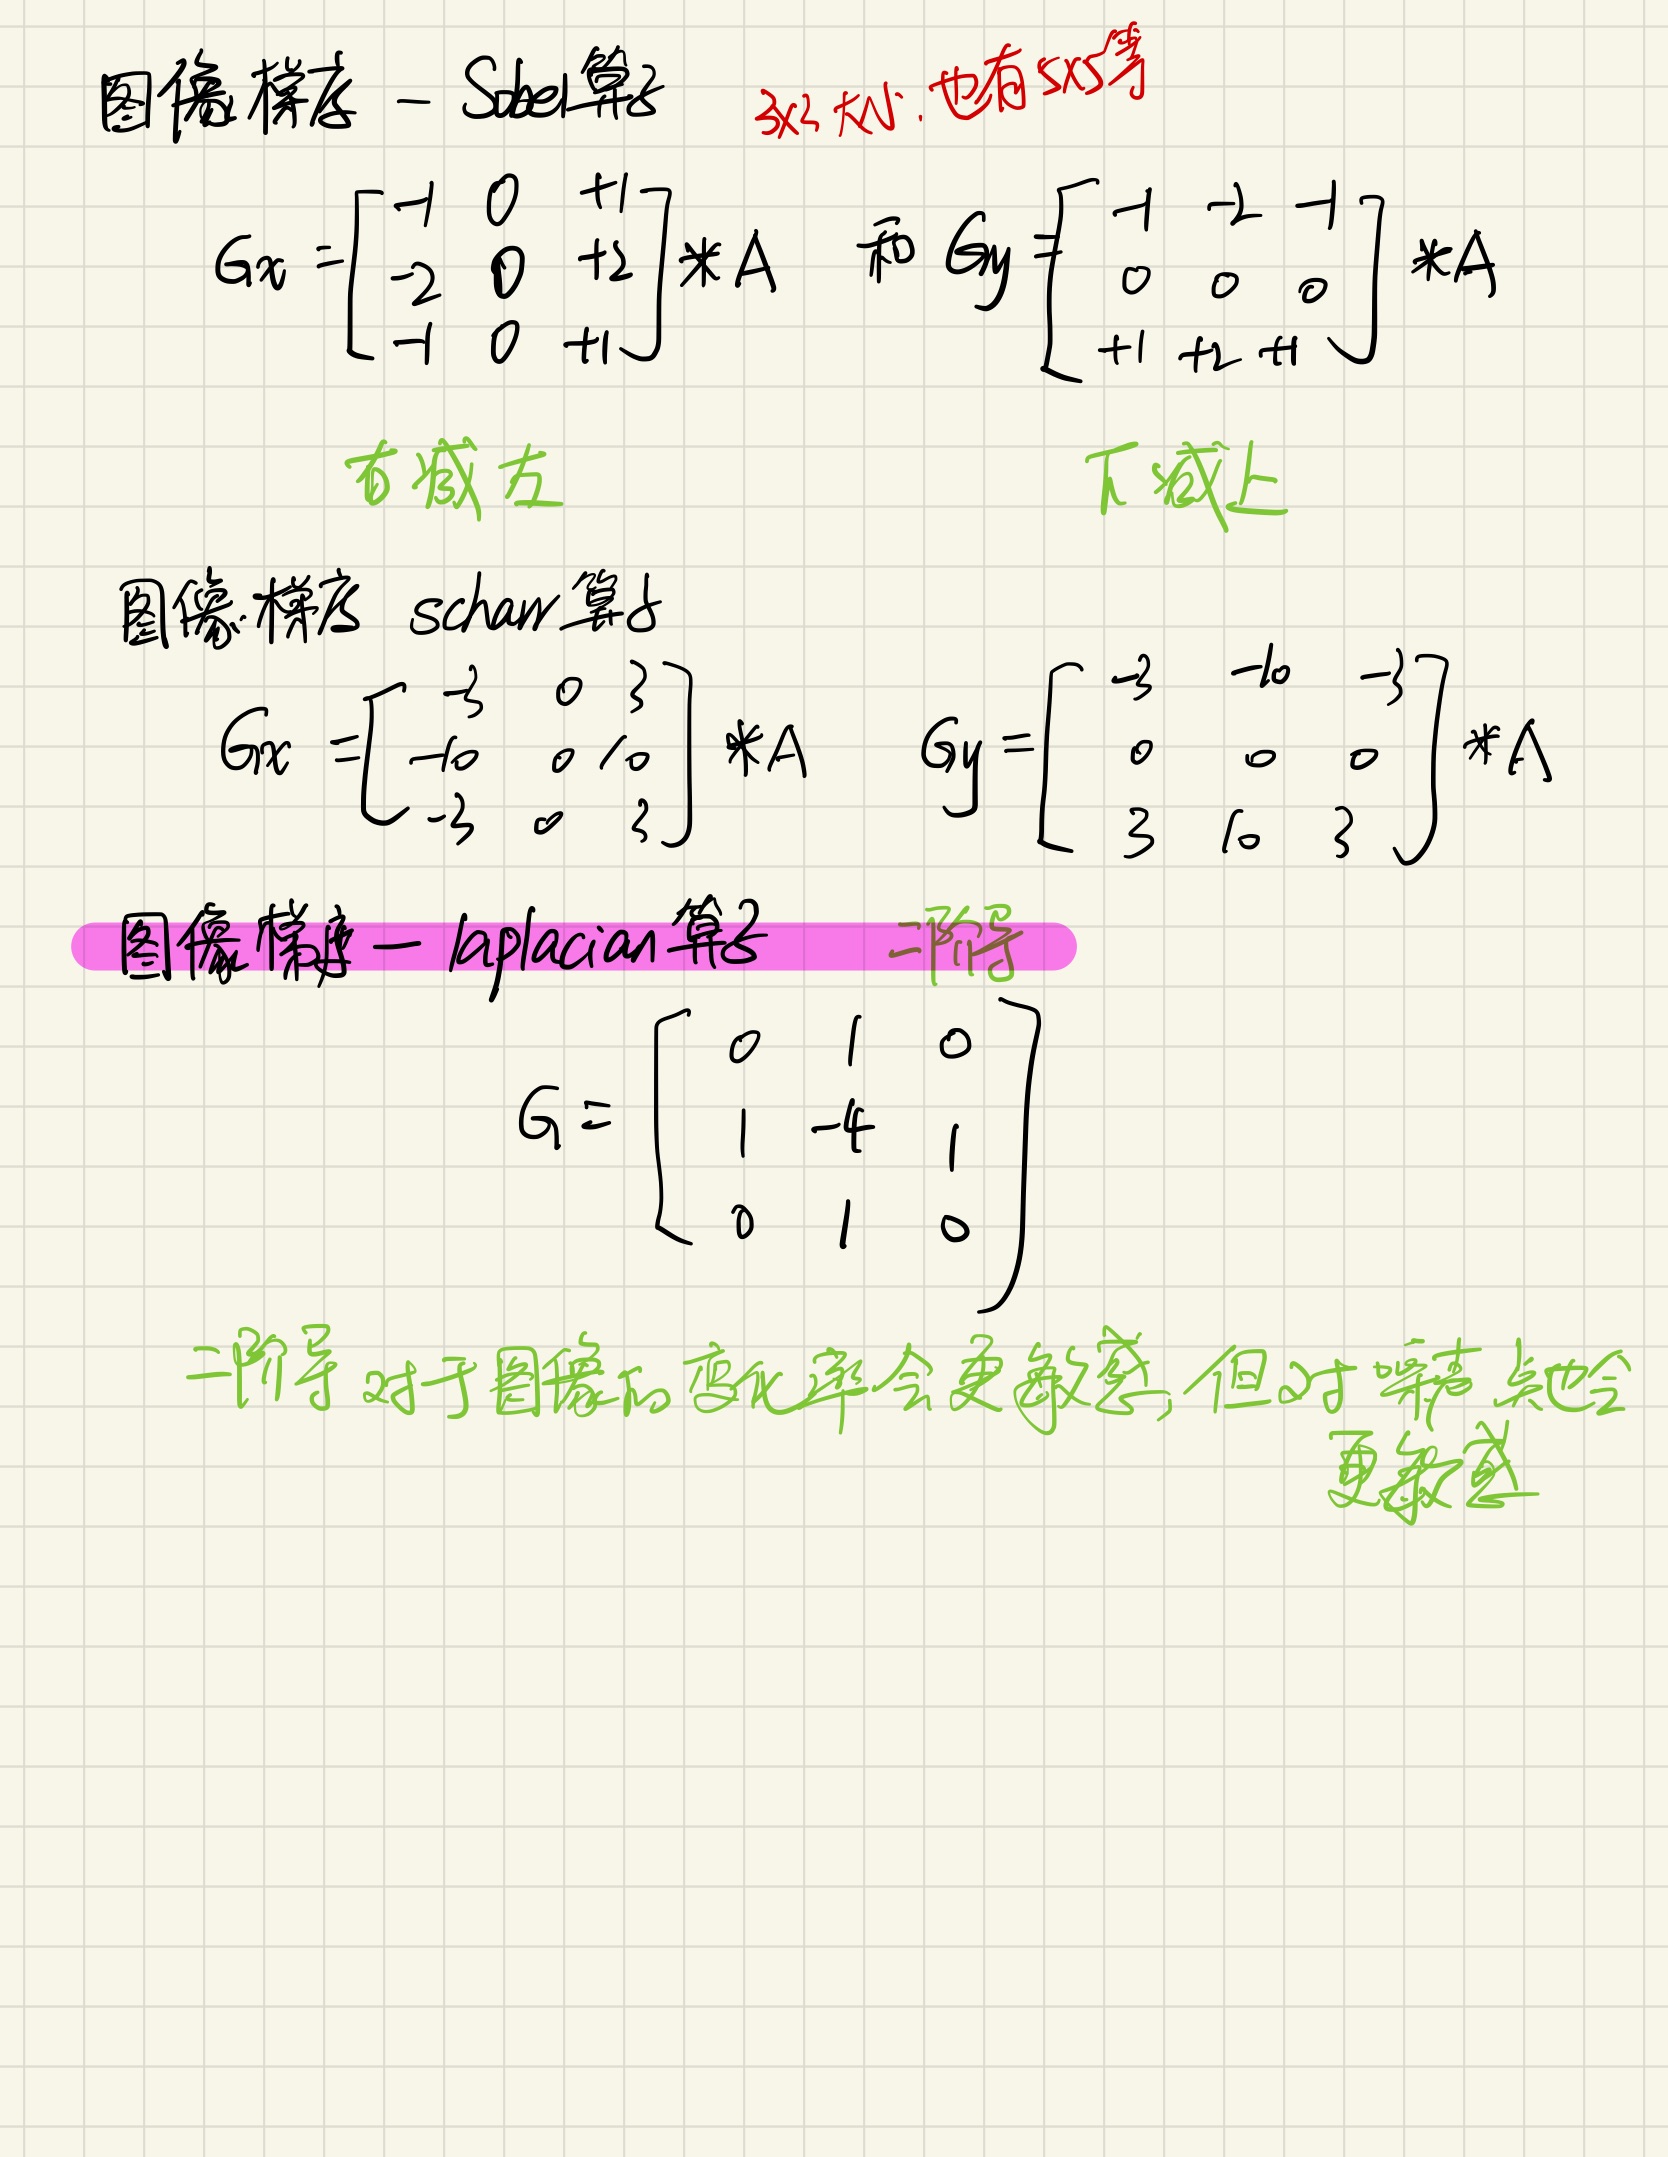 图像梯度 - Sobel算子 3x3大小.也有5x5等
Gx = [ -1 0 +1 ] *A 和 Gy = [ -1 -2 -1 ] *A
-2 0 +2 0 0 0
-1 0 +1 +1 +2 +1
右减左 下减上
图像梯度 scharr算子
Gx = [ -3 0 3 ] *A Gy = [ -3 -10 -3 ] *A
-10 0 10 0 0 0
-3 0 3 3 10 3
图像梯度 - laplacian算子 二阶导
G = [ 0 1 0 ]
1 -4 1
0 1 0
二阶导对于图像的变化率会更敏感,但对噪声点也会
更敏感